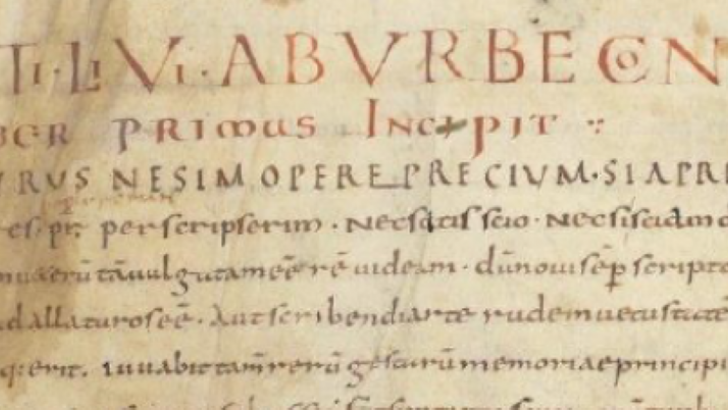 TI·LIVI·ABVRBECON
BER PRIMUS INCIPIT
VRUS NESIM OPERE PRECIUM·SIAPRI
perscripserim · Necsatis scio · Necsisciam
tāuulgatameē rē uideam · dū noui sēp scripto
Autscribendiarte rudemuetustate
querit. Iuuabit tam̄ rerū gestarū memoriae principi